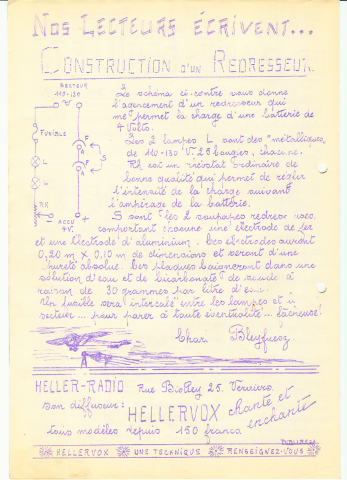 Nos Lecteurs écrivent...
Construction d'un Redresseur.
SECTEUR
110-130
FUSIBLE
L
L
RH
ACCU
4V.
F
A
F
A
S
Le schema ci-contre vous donne
l'agencement d'un redresseur qui
me permet la charge d'une batterie de
4 Volts.
Les 2 lampes L sont des "métalliques"
de 110-130 V. 25 bougies, chacune.
Rh est un rhéostat ordinaire de
bonne qualité qui permet de régler
l'intensité de la charge suivant
l'ampérage de la batterie.
S sont les 2 soupapes redresseuses,
comportant chacune une électrode de fer
et une électrode d'aluminium. Ces électrodes auront
0,20 m X 0,10 m de dimensions et seront d'une
pureté absolue. Ces plaques baigneront dans une
solution d'eau et de bicarbonate de soude à
raison de 30 grammes par litre d'eau.
Un fusible sera intercalé entre les lampes et le
secteur... pour parer à toute éventualité... fâcheuse!
Char. Bleyfuesz
HELLER-RADIO Rue B. 25. Verviers.
Son diffuseur: HELLERVOX chante et
enchante
tous modèles depuis 150 francs
HELLERVOX UNE TECHNIQUE RENSEIGNEZ-VOUS